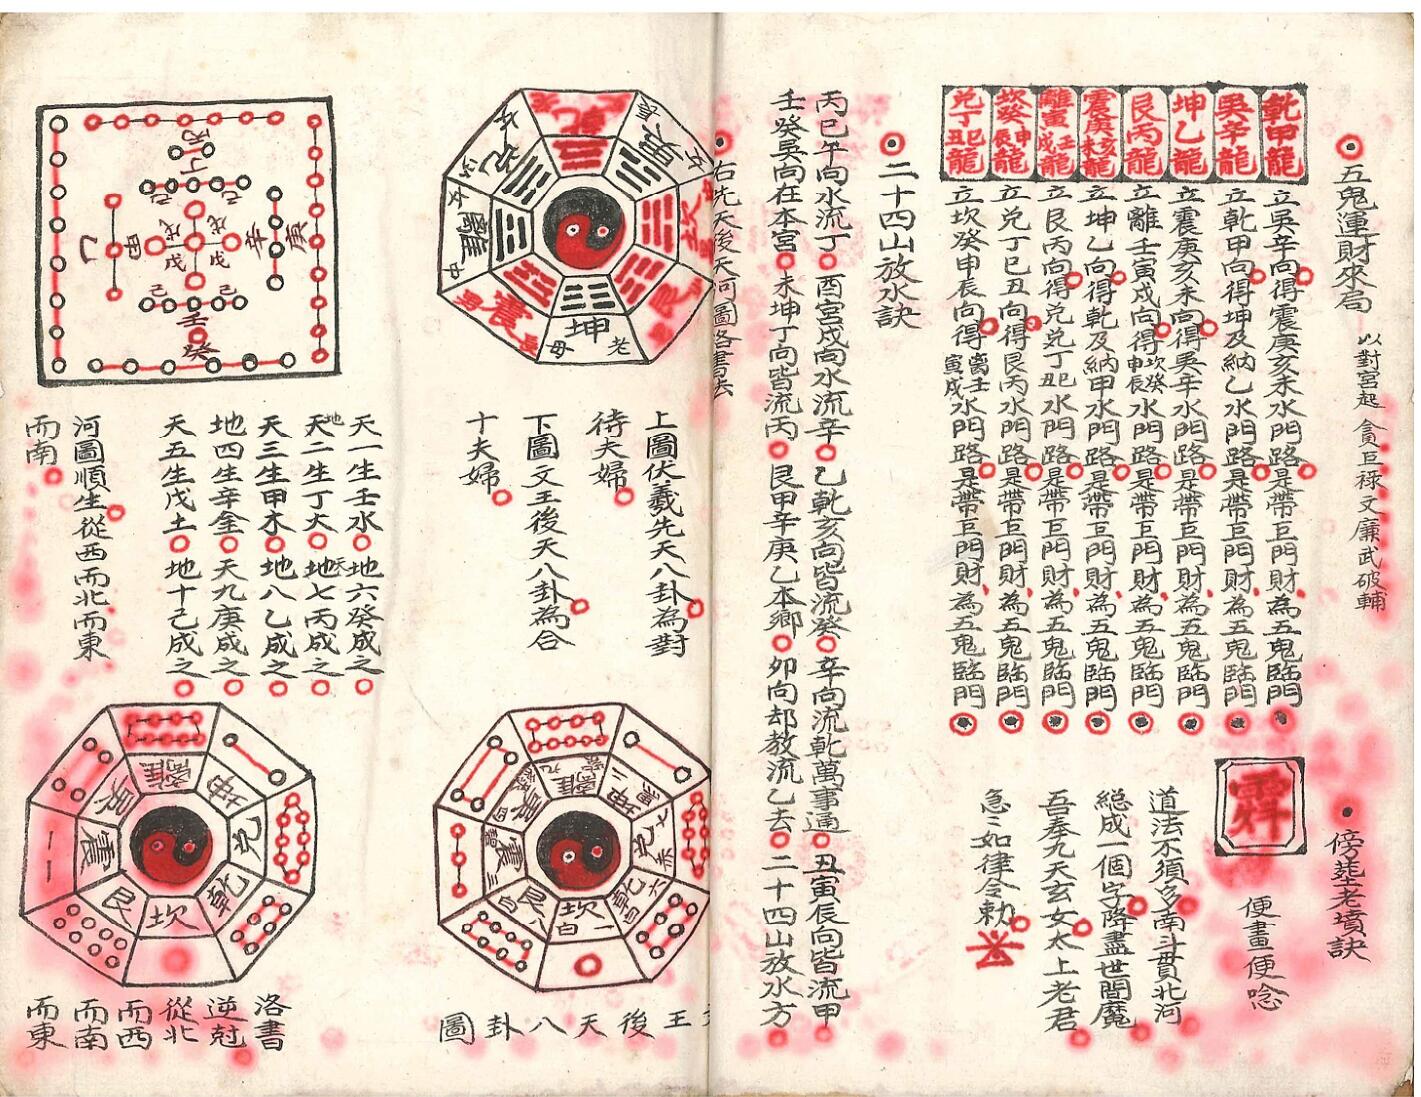 五鬼運財來局
以對宮起 貪巨祿文廉武破輔
乾甲龍
立巽辛向得震庚亥未水門路是帶巨門財為五鬼臨門
巽辛龍
立乾甲向得坤及納乙水門路是帶巨門財為五鬼臨門
坤乙龍
立震庚亥未向得巽辛水門路是帶巨門財為五鬼臨門
艮丙龍
立離壬寅戌向得坎癸申辰水門路是帶巨門財為五鬼臨門
震庚亥未龍
立坤乙向得乾及納甲水門路是帶巨門財為五鬼臨門
離寅壬戌龍
立艮丙向得兌兌丁巳丑水門路是帶巨門財為五鬼臨門
坎癸申辰龍
立兌丁巳丑向得艮丙水門路是帶巨門財為五鬼臨門
兌丁巳丑龍
立坎癸申辰向得離壬寅戌水門路是帶巨門財為五鬼臨門
傍塟老墳訣
便畫便唸
道法不須多南斗貫北河
総成一個字降盡世間魔
吾奉九天玄女太上老君
急々如律令勅
二十四山放水訣
丙巳午向水流丁 酉宮戍向水流辛 乙乾亥向皆流癸 辛向流乾萬事通 丑寅辰向皆流甲
壬癸巽向在本宮 未坤丁向皆流丙 艮甲辛庚乙本鄉 卯向却教流乙去 二十四山放水方
右先天後天河圖洛書去
乾
巽
坎
艮
坤
老母
震
長男
離
中女
兌
少女
上圖伏羲先天八卦為對
待夫婦
下圖文王後天八卦為合
十夫婦
離九
坤二黑
兌七赤
乾六白
坎一白
艮八白
震三碧
巽四
文王後天八卦圖
丙
丁
己
己
戊
戊
戊
戊
甲
乙
辛
庚
己
己
壬
癸
天一生壬水 地六癸成之
天地二生丁火 地天七丙成之
天三生甲木 地八乙成之
地四生辛金 天九庚成之
天五生戊土 地十己成之
河圖順生從西而北而東
而南
離
坤
兌
乾
坎
艮
震
巽
洛書
逆尅
從北
而西
而南
而東